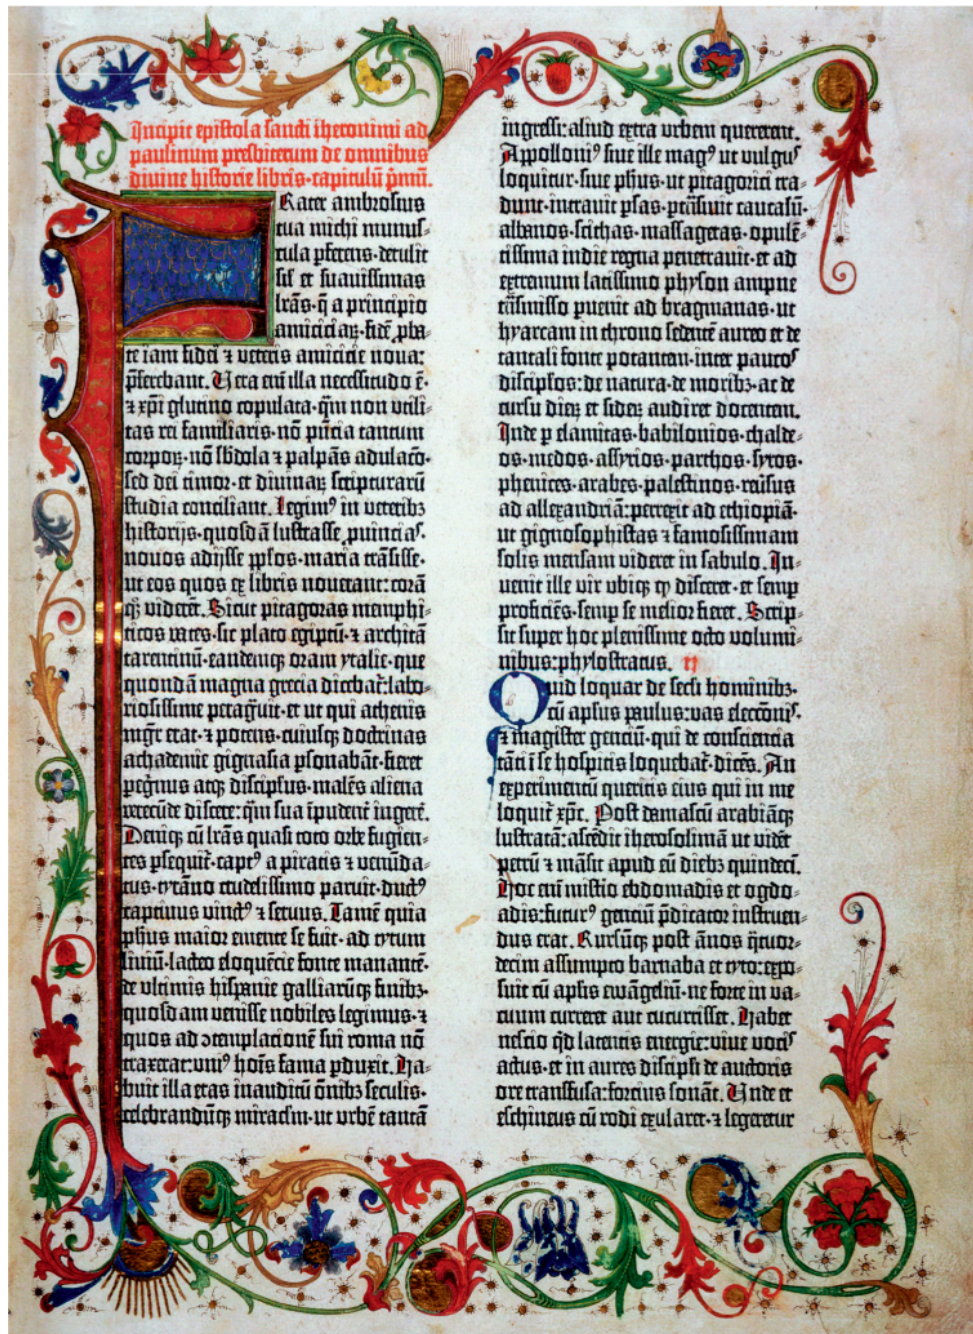 Incipit epistola sancti iheronimi ad
paulinum presbiterum de omnibus
divine historie libris·capitulū p̄mū.
Frater ambrosius
tua michi munus⸗
cula ꝑferens·detulit
sil̄ et suavissimas
lr̄as·q̄ a principio
amiciciaꝝ·fidē ꝓba⸗
te iam fidei ⁊ veteris amicicie nova:
p̄ferebant. Vera eni̅ illa necessitudo ē·
⁊ xp̄i glutino copulata·qm̄ non utili⸗
tas rei familiaris·nō p̄ncia tantum
corpoꝝ·nō sb̄dola ⁊ palpās adulacō·
sed dei timor·et divinaꝝ scripturarū
studia conciliant. Legimꝰ in veteribꝫ
historijs·quosdā lustrasse ꝓvinciaˢ·
novos adijsse pp̄los·maria trāsisse·
ut eos quos ex libris noverant: corā
qꝫ viderēt. Sicut pitagoras memphi⸗
ticos vates·sic plato egiptū·⁊ architā
tarentinū·eandemqꝫ oram ytalie·que
quondā magna grecia dicebat̄: labo⸗
riosissime peragvit·et ut qui athenis
mgr̄ erat·⁊ potens·cuiusqꝫ doctrinas
achademie gignasia ꝑsonabāt·fieret
peg̊rinus atqꝫ discipl̄us·malēs aliena
verecūde discere: qm̄ sua īpudent̄ ingerē.
Deniqꝫ cū lr̄as quasi toto orbe fugien⸗
tes ꝑsequit̄·captꝰ a piratis ⁊ venūda⸗
tus·tyrāno crudelissimo paruit·ductꝰ
captivus vinctꝰ ⁊ servus. Tamē quia
ph̄us maior emente se fuit·ad tytum
liviū·lacteo eloquēcie fonte manantē·
de ultimis hispanie galliarūqꝫ finibꝫ·
quosdam venisse nobiles legimus·⁊
quos ad ɔtemplacionē sui roma nō
traxerat: unīꝰ hoīs fama ꝑduxit. Ha⸗
buit illa etas inauditū om̄ibꝫ seculis·
celebrandūqꝫ miracl̄m·ut urbē tantā
ingressi: aliud extra urbem quererent.
Appolloniꝰ sive ille magꝰ ut vulgus
loquitur·sive ph̄us·ut pitagorici tra⸗
dunt·intravit ꝑsas·ptrāsivit caucasū·
albanos·scithas·massagetas·opulē⸗
tissima indie regna penetravit·et ad
extremum latissimo physon ampne
trāsmisso ꝑvenit ad bragmanas·ut
hyarcam in throno sedentē aureo et de
tantali fonte potantem·inter paucoˢ
discipl̄os: de natura·de moribꝫ·ac de
cursu dieꝝ et sideꝝ audiret docentem.
Inde ꝑ elamitas·babilonios·chalde⸗
os·medos·assyrios·parthos·syros·
phenices·arabes·palestinos·rev̄sus
ad allexandriā: perrexit ad ethiopiā·
ut gignosophistas ⁊ famosissimam
solis mensam videret in sabulo. In⸗
venit ille vir ubiqꝫ qꝫ disceret·et semꝑ
proficiēs·semꝑ se melior fieret. Scrip⸗
sit super hoc plenissime octo volumi⸗
nibus: phylostratus. II
Quid loquar de seculi hominibꝫ·
cū apl̄us paulus: vas elecc̄onīˢ·
⁊ magister genciū·qui de consciencia
tāti ī se hospitis loquebat̄·dicēs. An
experimentū queritis eius qui in me
loquit̄ xp̄c. Post damascū arabiāqꝫ
lustratā: ascēdit iherosolimā ut videt̄
petrū ⁊ māsit apud eū diebꝫ quindeci̅.
Hoc eni̅ misterio ebdomadis et ogdo⸗
adis: futurꝰ genciū p̄dicator instruen⸗
dus erat. Rursūqꝫ post ānos q̈tuor⸗
decim assumpto barnaba et tyto: expo⸗
suit cū apl̄is ewāgeliū·ne forte in va⸗
cuum curreret aut cucurrisset. Habet
nescio qd̄ latentis energie: vive vociˢ
actus·et in aures discipl̄i de auctoris
ore transfusa: forcius sonāt. Unde et
eschineus cū rodi exularet·⁊ legeretur